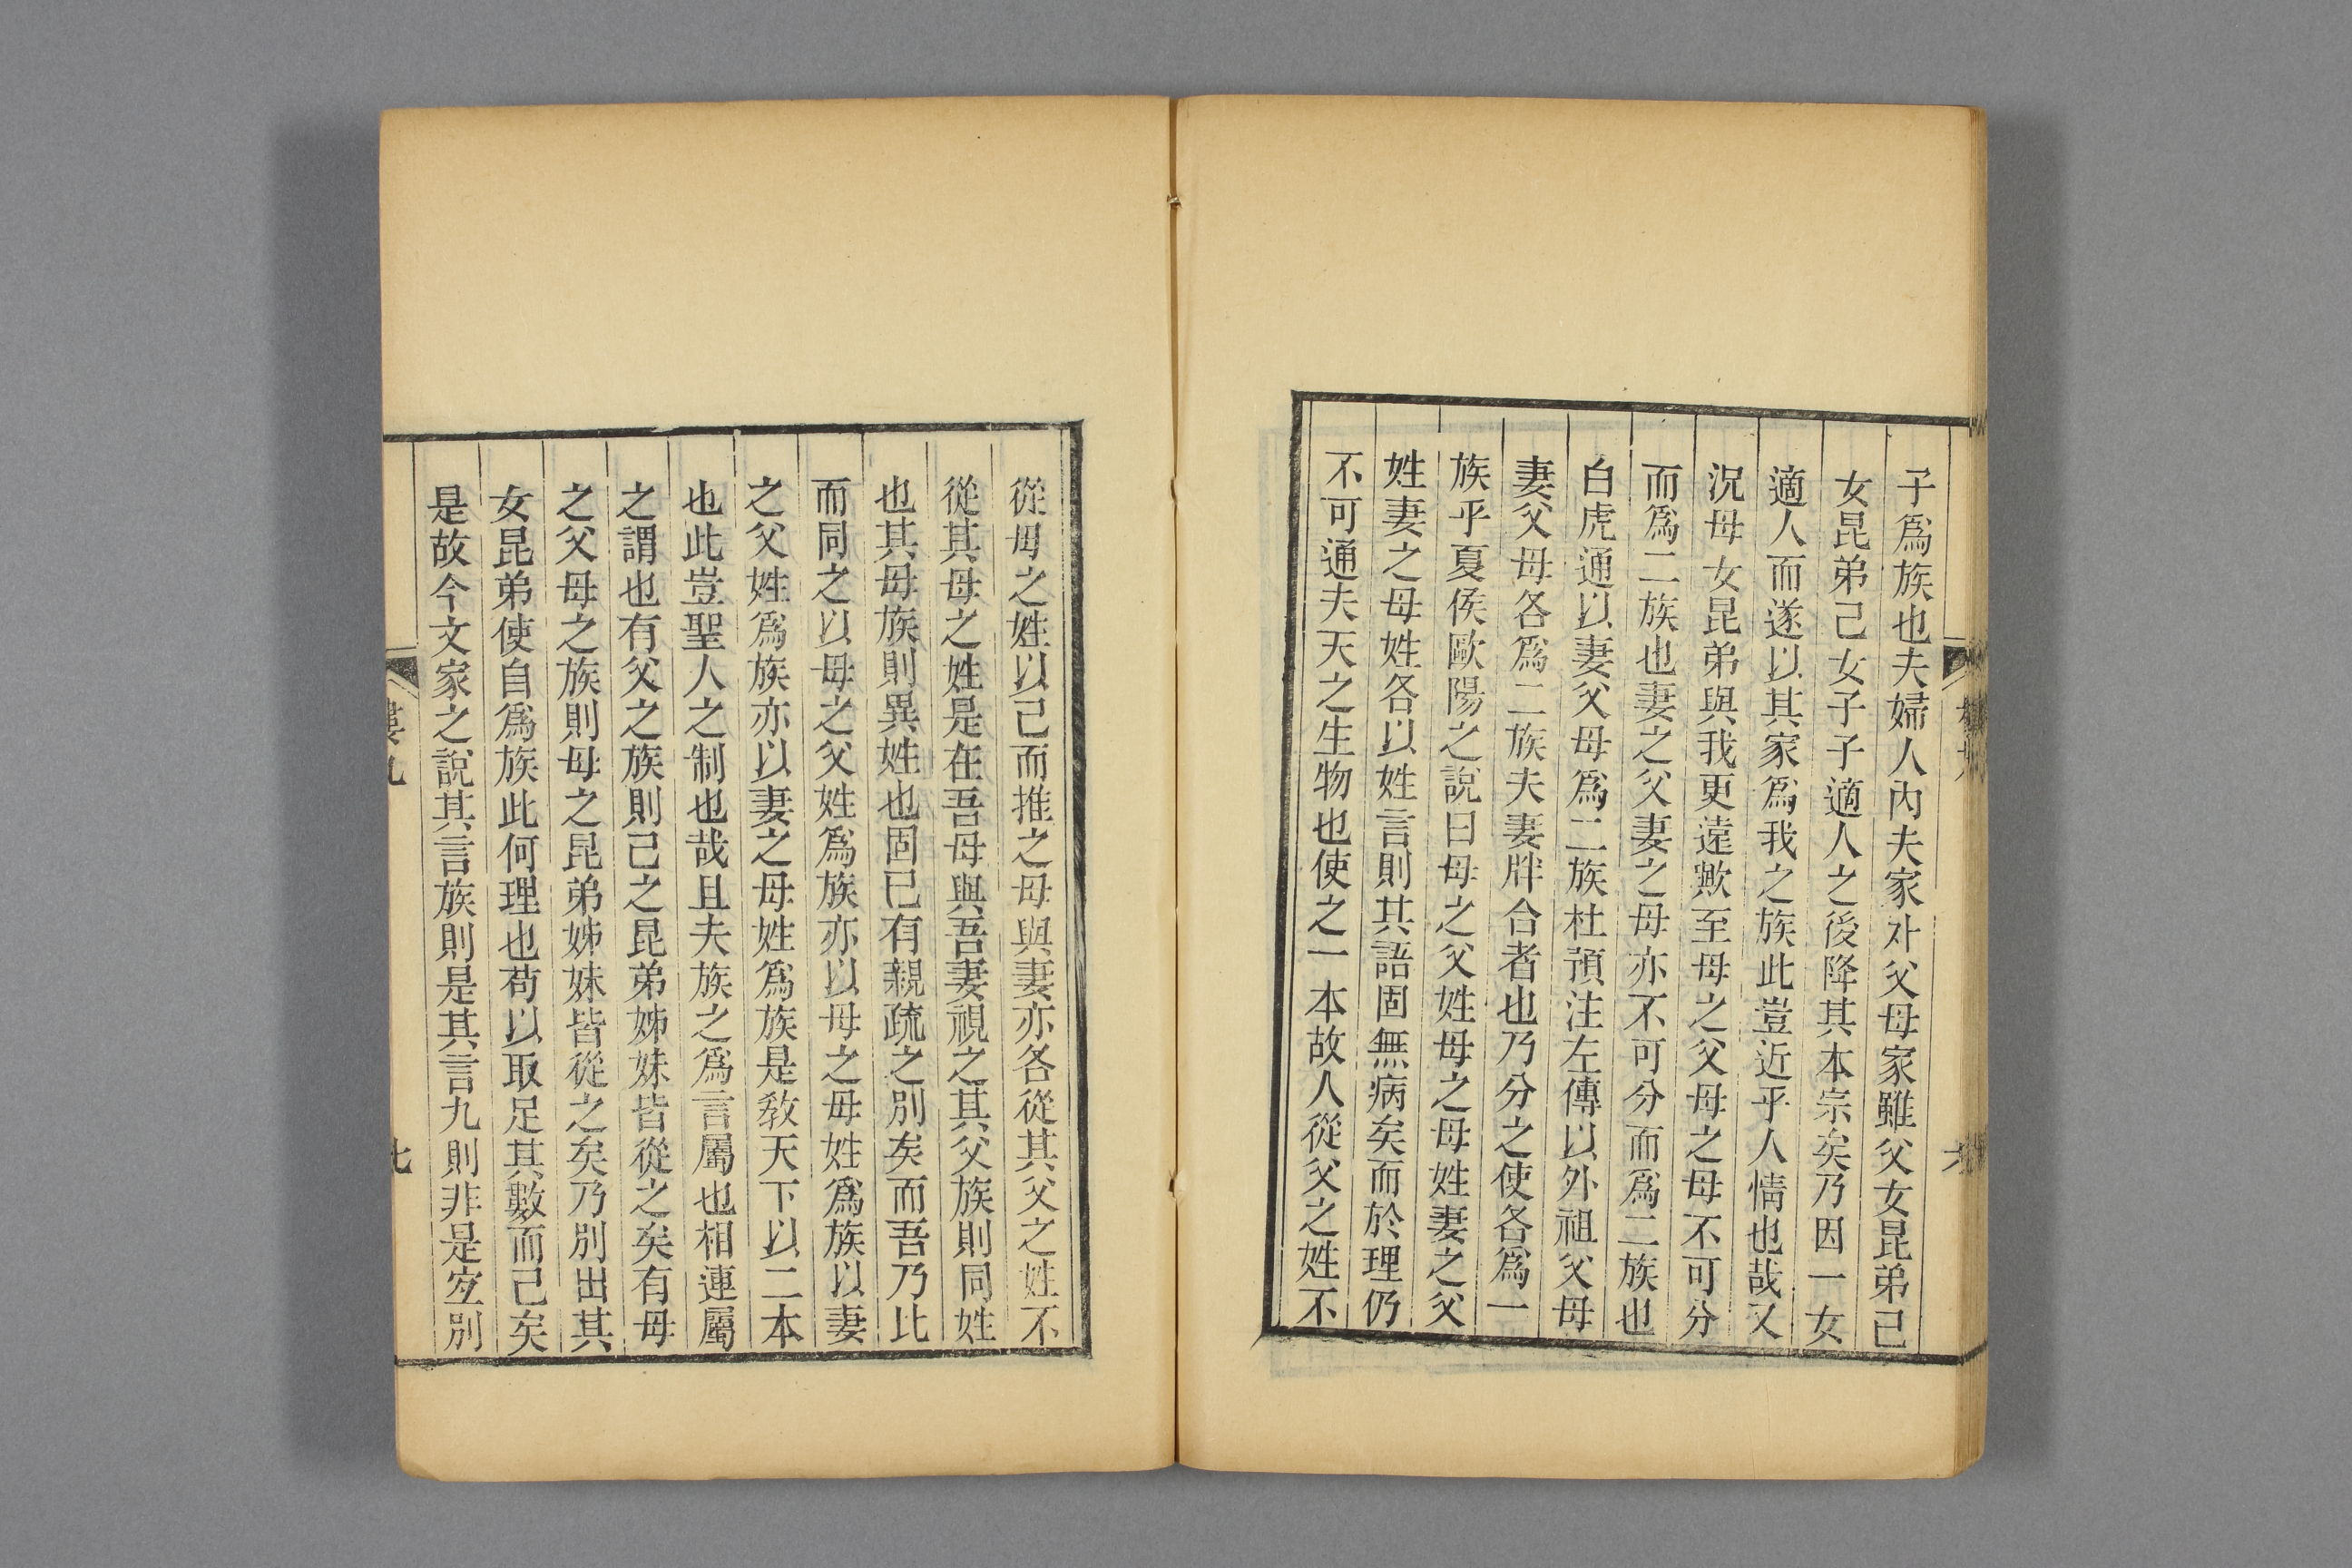 子爲族也夫婦人內夫家外父母家雖父女昆弟己
女昆弟己女子子適人之後降其本宗矣乃因一女
適人而遂以其家爲我之族此豈近乎人情也哉又
況母女昆弟與我更遠歟至母之父母之母不可分
而爲二族也妻之父妻之母亦不可分而爲二族也
白虎通以妻父母爲二族杜預注左傳以外祖父母
妻父母各爲二族夫妻牉合者也乃分之使各爲一
族乎夏侯歐陽之說曰母之父姓母之母姓妻之父
姓妻之母姓各以姓言則其語固無病矣而於理仍
不可通夫天之生物也使之一本故人從父之姓不
從母之姓以己而推之母與妻亦各從其父之姓不
從其母之姓是在吾母與吾妻視之其父族則同姓
也其母族則異姓也固已有親疏之別矣而吾乃比
而同之以母之父姓爲族亦以母之母姓爲族以妻
之父姓爲族亦以妻之母姓爲族是敎天下以二本
也此豈聖人之制也哉且夫族之爲言屬也相連屬
之謂也有父之族則己之昆弟姊妹皆從之矣有母
之父母之族則母之昆弟姊妹皆從之矣乃別出其
女昆弟使自爲族此何理也苟以取足其數而已矣
是故今文家之說其言族則是其言九則非是宐別
七